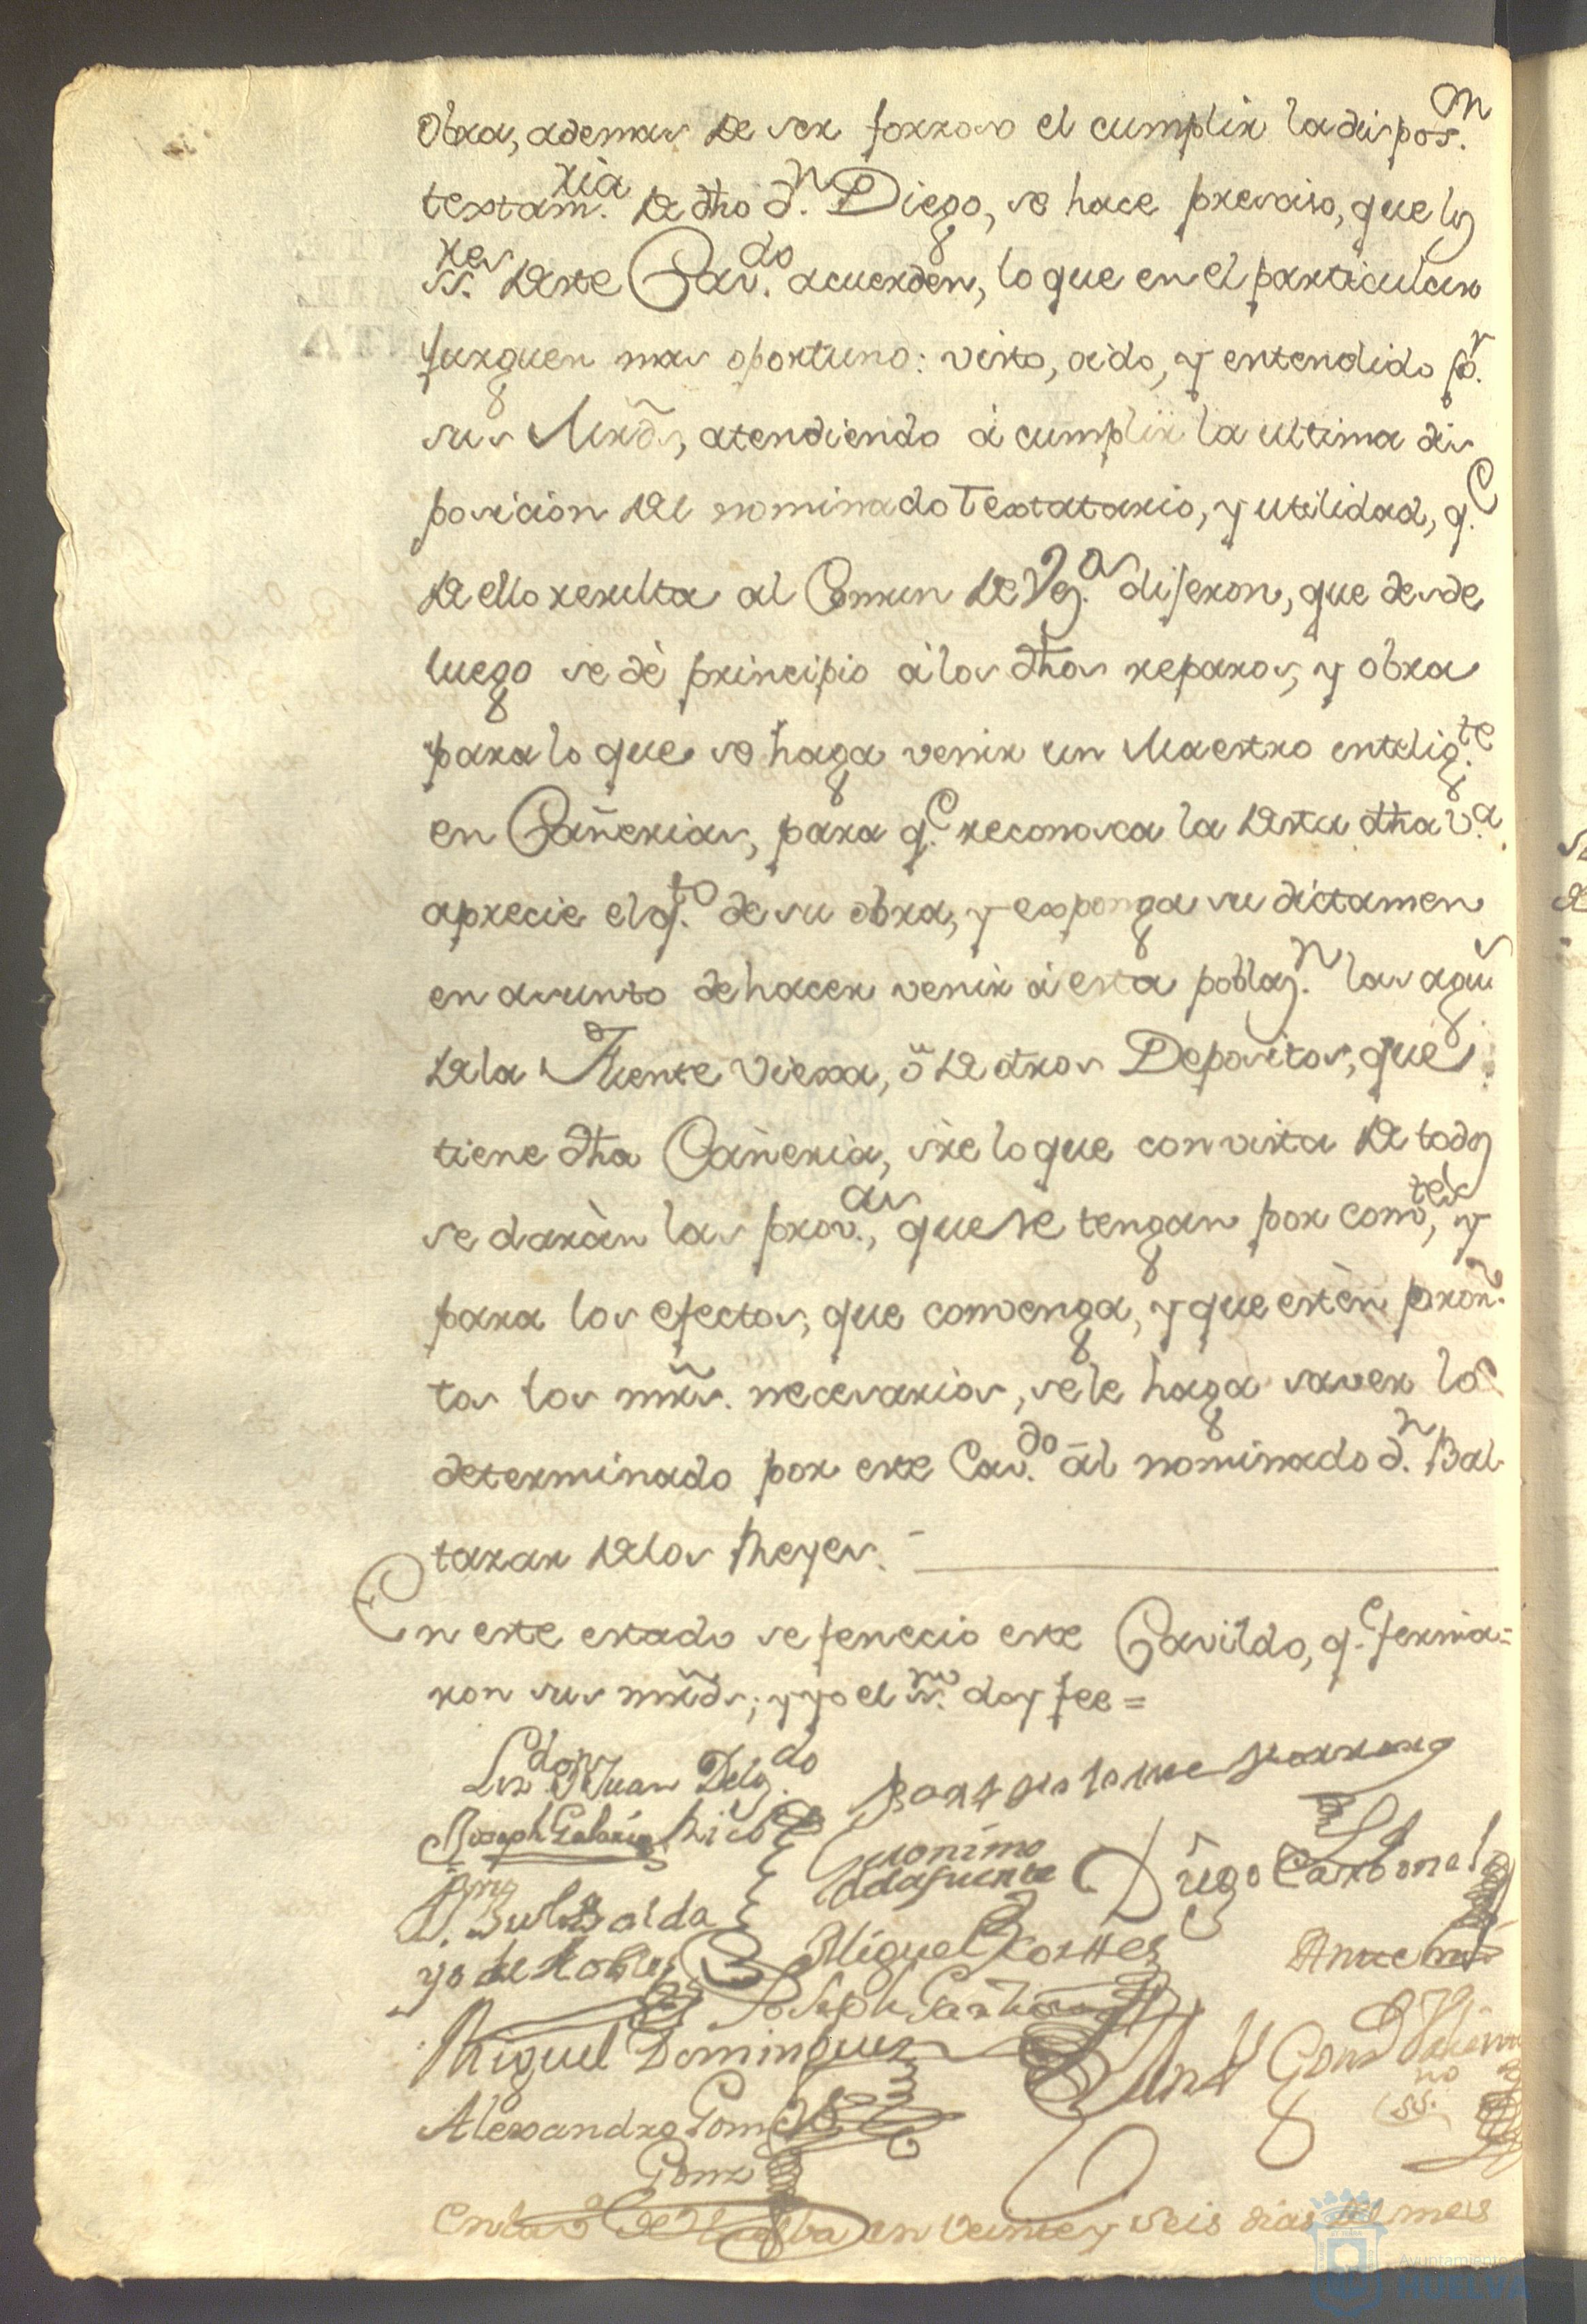 Obra, ademas de ser forsoso el cumplir la dispos.n
textam.ria de dho d.n Diego, se hace presaiso, que los
ss.res deste Cav.do acuerden, lo que en el particular
jusguen mas oportuno: visto, oido, y entendido po.r
sus Mrds, atendiendo á cumplir la ultima dis
posicion del nominado Textatario, y utilidad, q.e
de ello resulta al Comun de Vez.os dijeron, que desde
luego se dè principio á los dhos reparos, y obra
para lo que se haga venir un Maestro entelig.te
en Cañerias, para q.e reconosca la desta dha v.a
aprecie el q.to de su obra, y exponga su dictamen
en asunto de hacer venir á esta poblaz.n las aguas
de la Fuente Viexa, ö de otros Depositos, que
tiene dha Cañeria, sre lo que con vista de todo
se daràn las prov.as, que se tengan por comb.tes, y
para los efectos, que convenga, y que estèn pron-
tos los mrs. necesarios, se le haga saver lo
determinado por este Cav.do al nominado d.n Bal
tazar de los Reyes.
En este estado se fenecio este Cavildo, q.e ferma=
ron sus mrds; y yo el ss.no doy fee=
Liz.do Dn Juan Delg.do
Rico
Joseph Gabriel
Geronimo
de la fuente
Diego Carbonel
Balda
yo de Robles
Miguel Cortes
Ante mi
Joseph
Miguel Dominguez
Alexandro Gomez
Gonz
ss.no
En la v.a de Huelba en veinte y seis dias del mes
Ayuntamiento
HUELVA